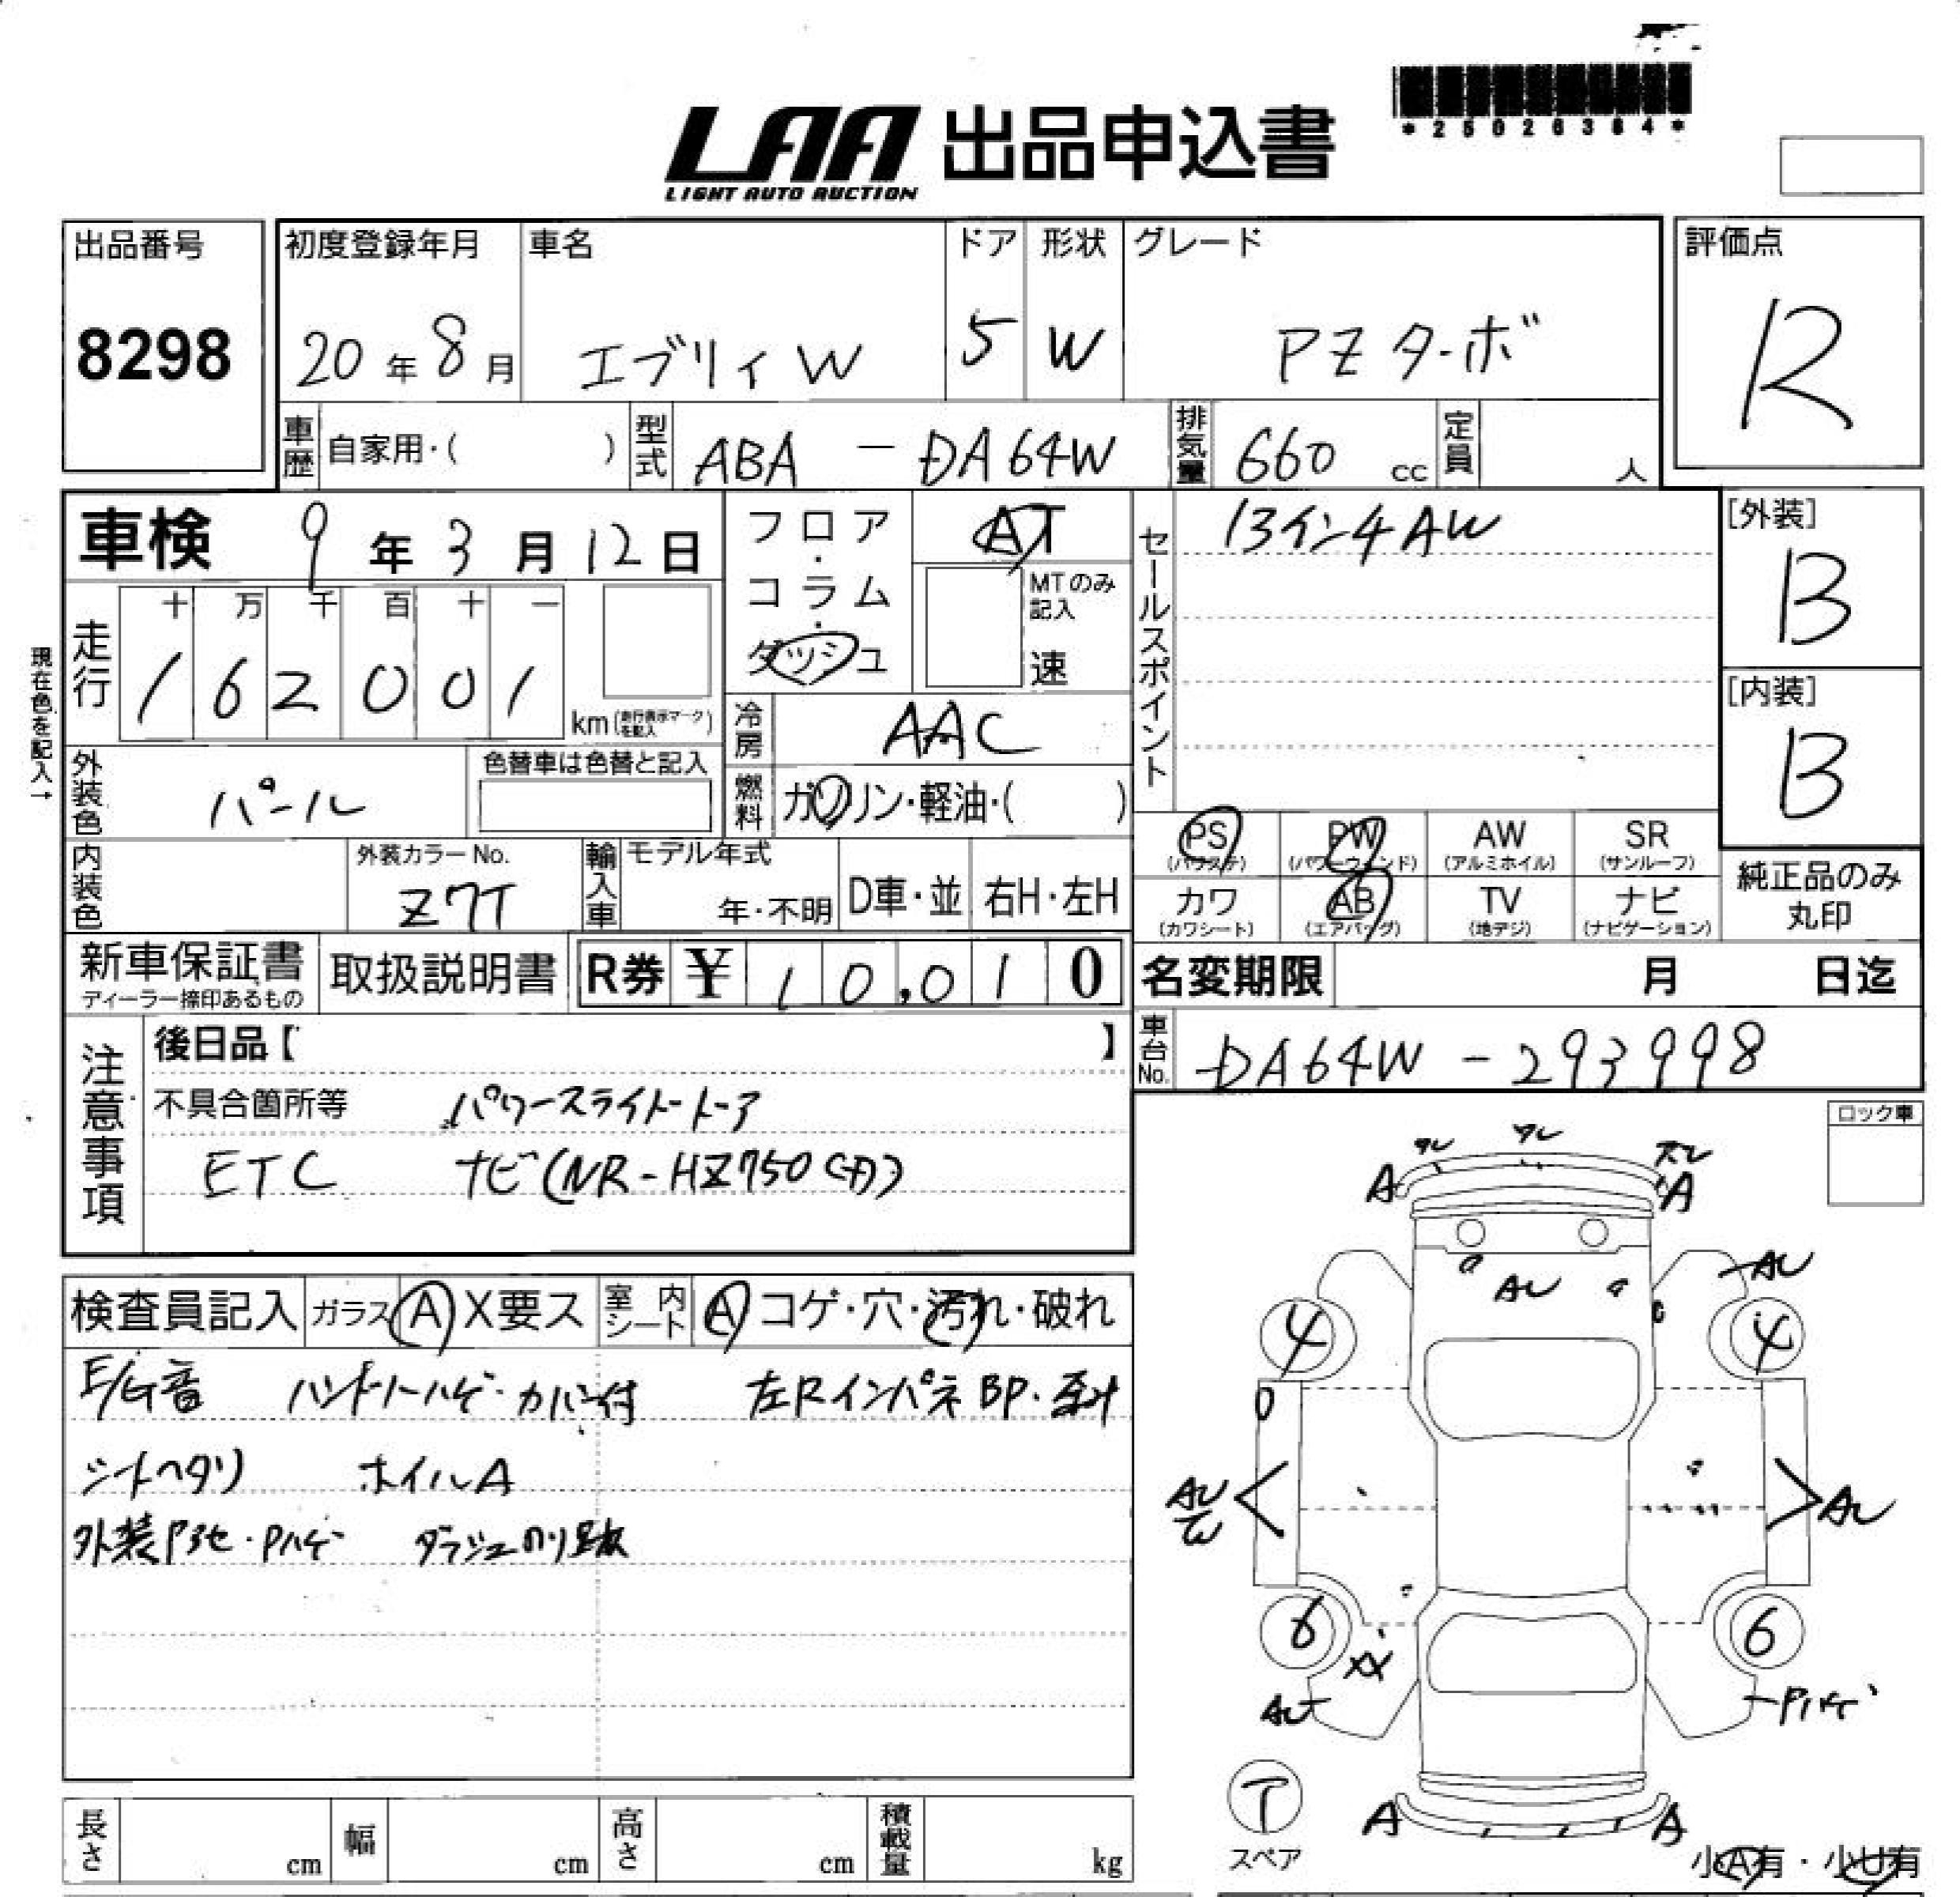 *25026364*
LAA 出品申込書
LIGHT AUTO AUCTION
出品番号 8298
初度登録年月 20年8月
車名 エブリィW
ドア 5
形状 W
グレード PZターボ
評価点 R
車歴 自家用・( )
型式 ABA - DA64W
排気量 660 cc
定員 人
車検 9年3月12日
現在色を記入→
走行 十 万 千 百 十 一
162001 km (走行表示マークを記入)
フロア・コラム・ダッシュ
AT
MTのみ記入 速
冷房 AAC
燃料 ガソリン・軽油・( )
セールスポイント 13インチAW
[外装] B
[内装] B
外装色 パール
色替車は色替と記入
内装色
外装カラーNo. Z7T
輸入車 モデル年式 年・不明
D車・並 右H・左H
PS (パワステ)
PW (パワーウィンド)
AW (アルミホイル)
SR (サンルーフ)
カワ (カワシート)
AB (エアバッグ)
TV (地デジ)
ナビ (ナビゲーション)
純正品のみ丸印
新車保証書 ディーラー捺印あるもの
取扱説明書
R券 ¥10,010
名変期限 月 日迄
車台No. DA64W-293998
注意事項
後日品【 】
不具合箇所等 パワースライドドア
ETC ナビ(NR-HZ750CD)
ロック車
検査員記入 ガラス A X要ス
室内シート A コゲ・穴・汚れ・破れ
E/G音 ハンドルハゲ・カバー付 左RインパネBP・
シートヘタリ ホイルA
外装P3セ・Pハゲ ダッシュのり跡
A A
AU AU
4 4
AU W AU
6 6
XX
AU Pハゲ
ア
スペア
A A
小A有・小U有
長さ cm
幅 cm
高さ cm
積載量 kg